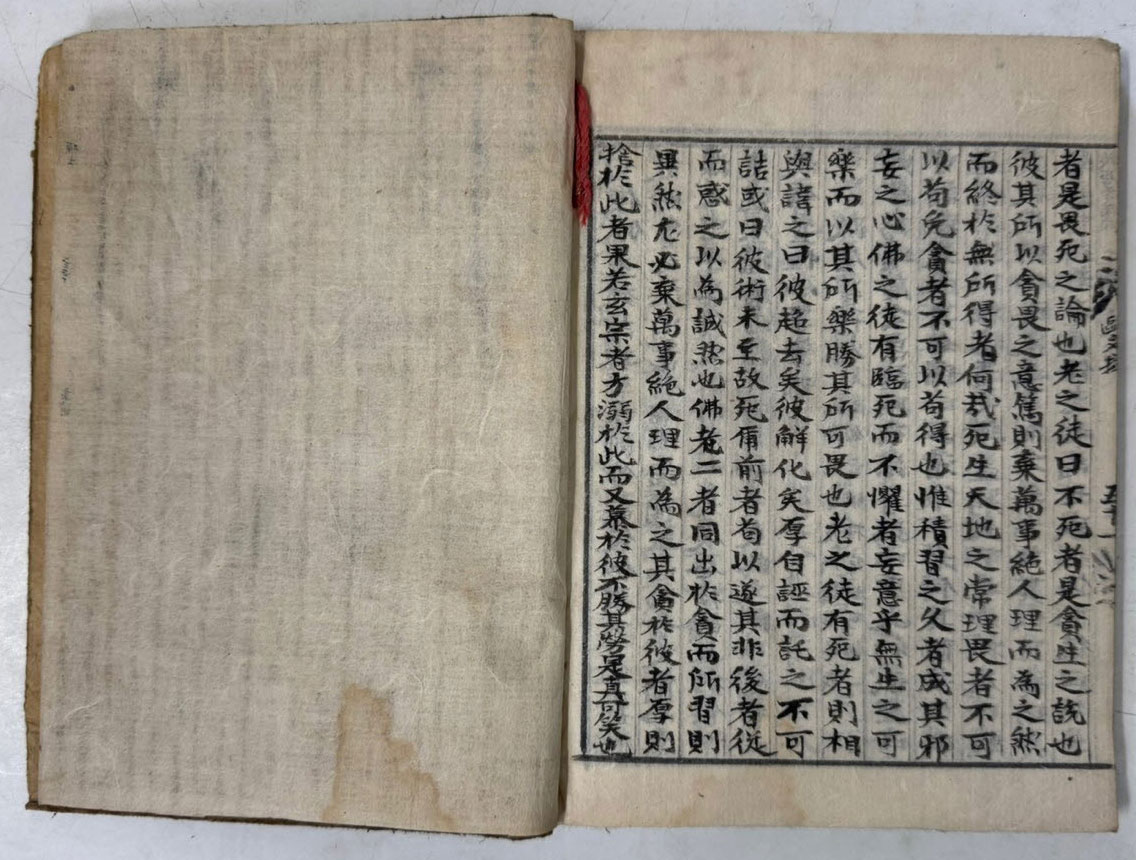 者是畏死之論也老之徒曰不死者是貪生之說也
彼其所以貪畏之意篤則棄萬事絶人理而為之然
而終於無所得者何哉死生天地之常理畏者不可
以苟免貪者不可以苟得也惟積習之久者成其邪
妄之心佛之徒有臨死而不懼者妄意乎無生之可
樂而以其所樂勝其所可畏也老之徒有死者則相
與諱之曰彼超去矣彼解化矣厚自誣而託之不可
詰或曰彼術未至故死爾前者苟以遂其非後者從
而惑之以為誠然也佛老二者同出於貪而所習則
異然尤必棄萬事絶人理而為之其貪於彼者厚則
捨於此者果若玄宗者方溺於此而又慕於彼不勝其勞是真可笑也